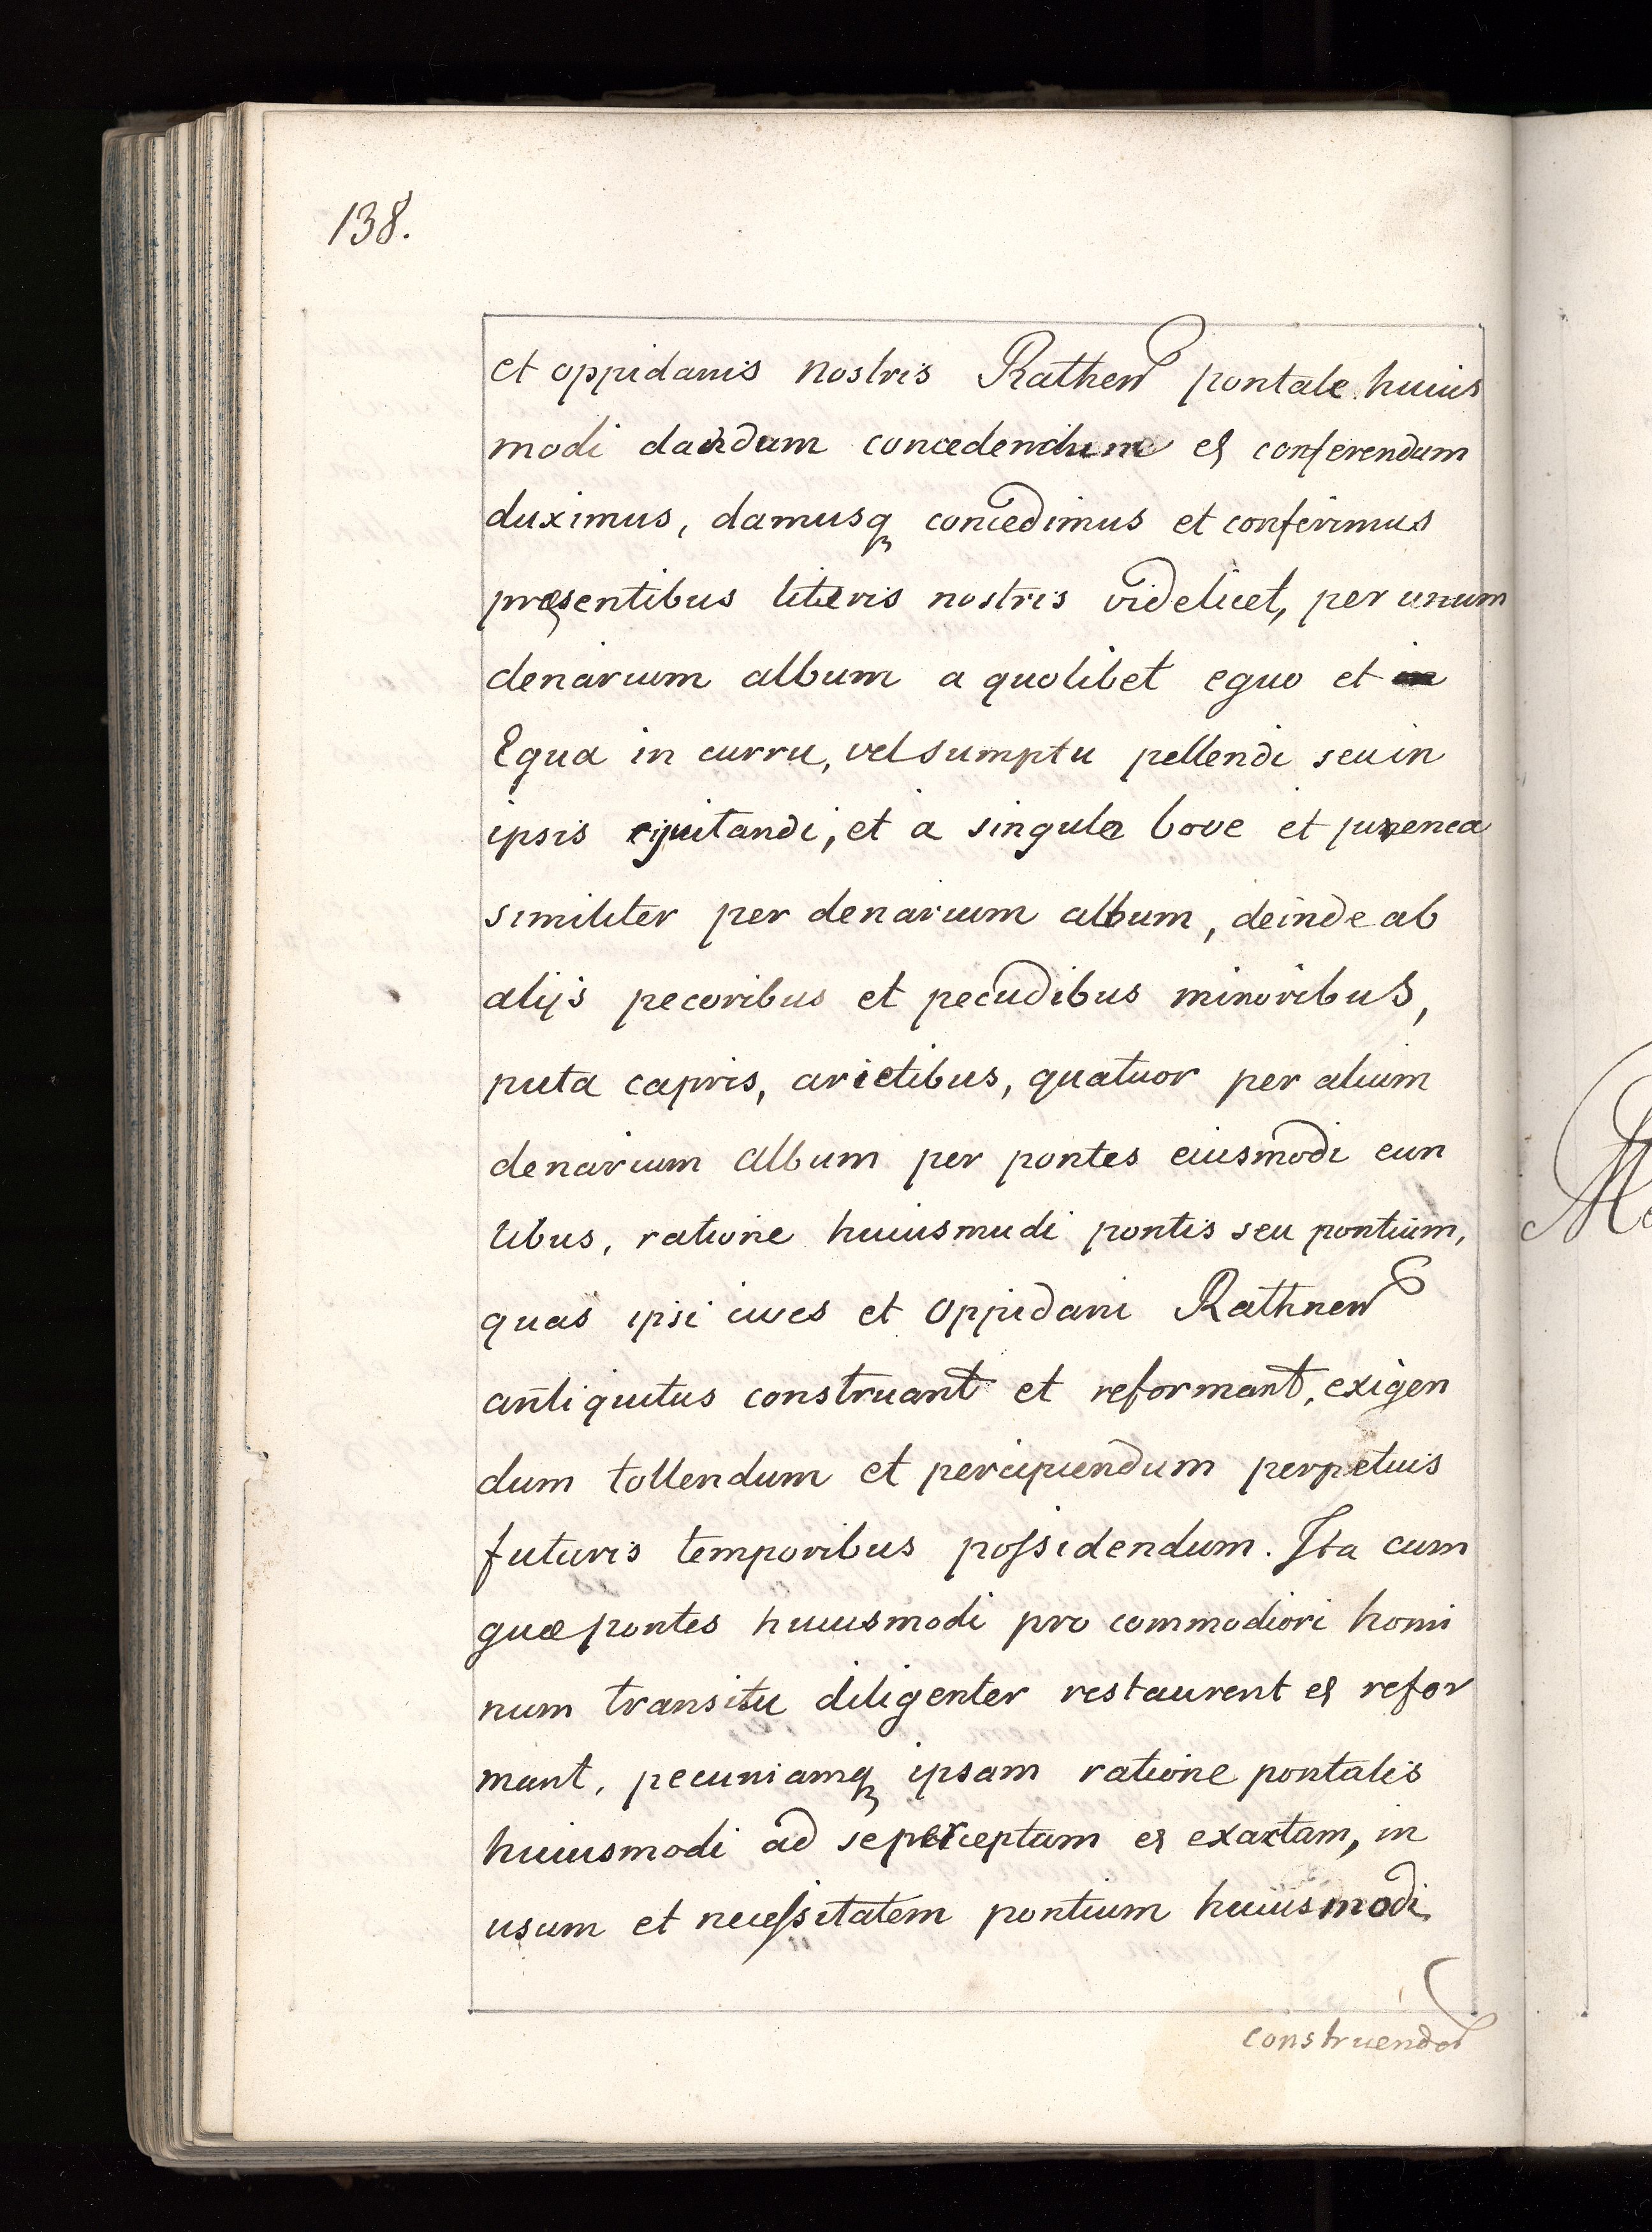 138.
et oppidanis nostris Rathen pontale huius
modi dandam concedendum et conferendum
duximus, damusq concedimus et conferimus
præsentibus literis nostris videlicet, per unum
denarium album a quolibet equo et
Equa in curru, vel sumptu pellendi seu in
ipsis equitandi, et a singula bove et juvenca
similiter per denarium album, deinde ab
alijs pecoribus et pecudibus minoribus,
puta capris, arietibus, quatuor per alium
denarium album per pontes eiusmodi eun
tibus, ratione huiusmudi pontis seu pontium,
quas ipsi cives et oppidani Rathnen
antiquitus construant et reformant, exigen
dum tollendum et percipiendum perpetuis
futuris temporibus possidendum. Ita cum
quæ pontes huiusmodi pro commodiori homi
num transitu diligenter restaurent et refor
mant, pecuniamq ipsam ratione pontalis
huiusmodi ad se perceptam et exactam, in
usum et necessitatem pontium huiusmodi
construendo